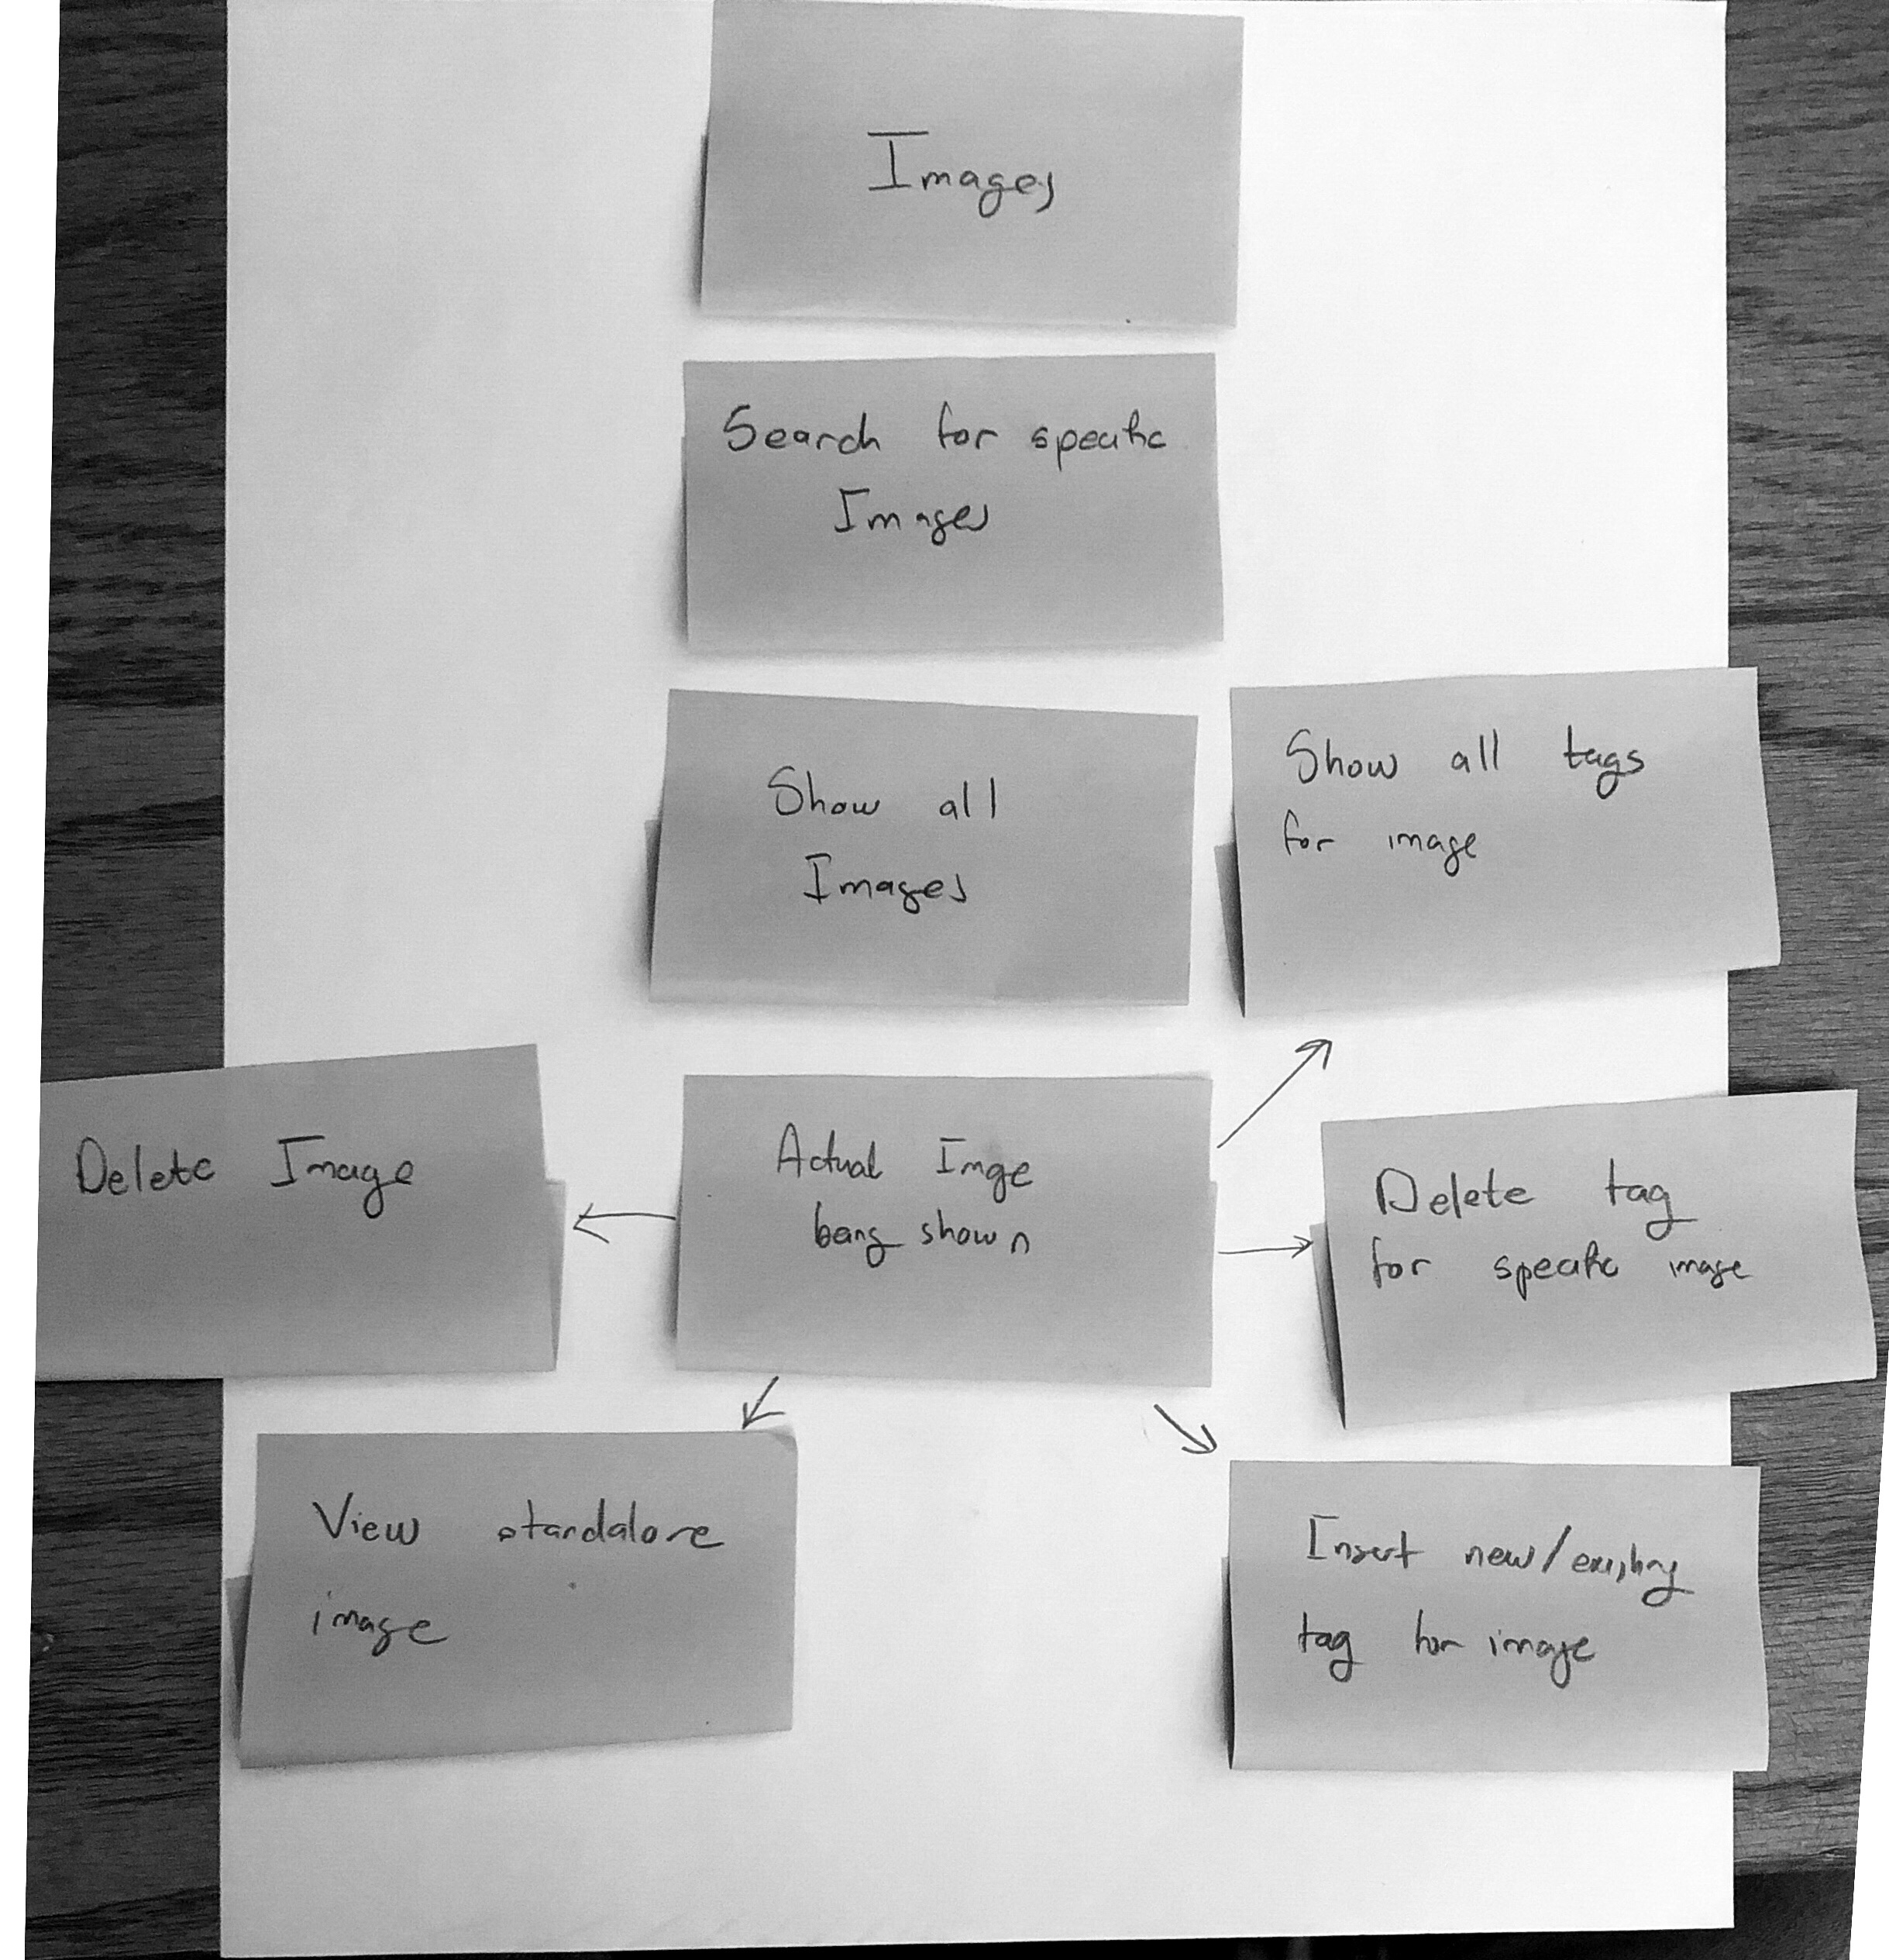 Images
Search for specific
Images
Show all
Images
Show all tags
for image
Delete Image
Actual Imge
being shown
Delete tag
for specific image
View standalone
image
Insert new/existing
tag for image